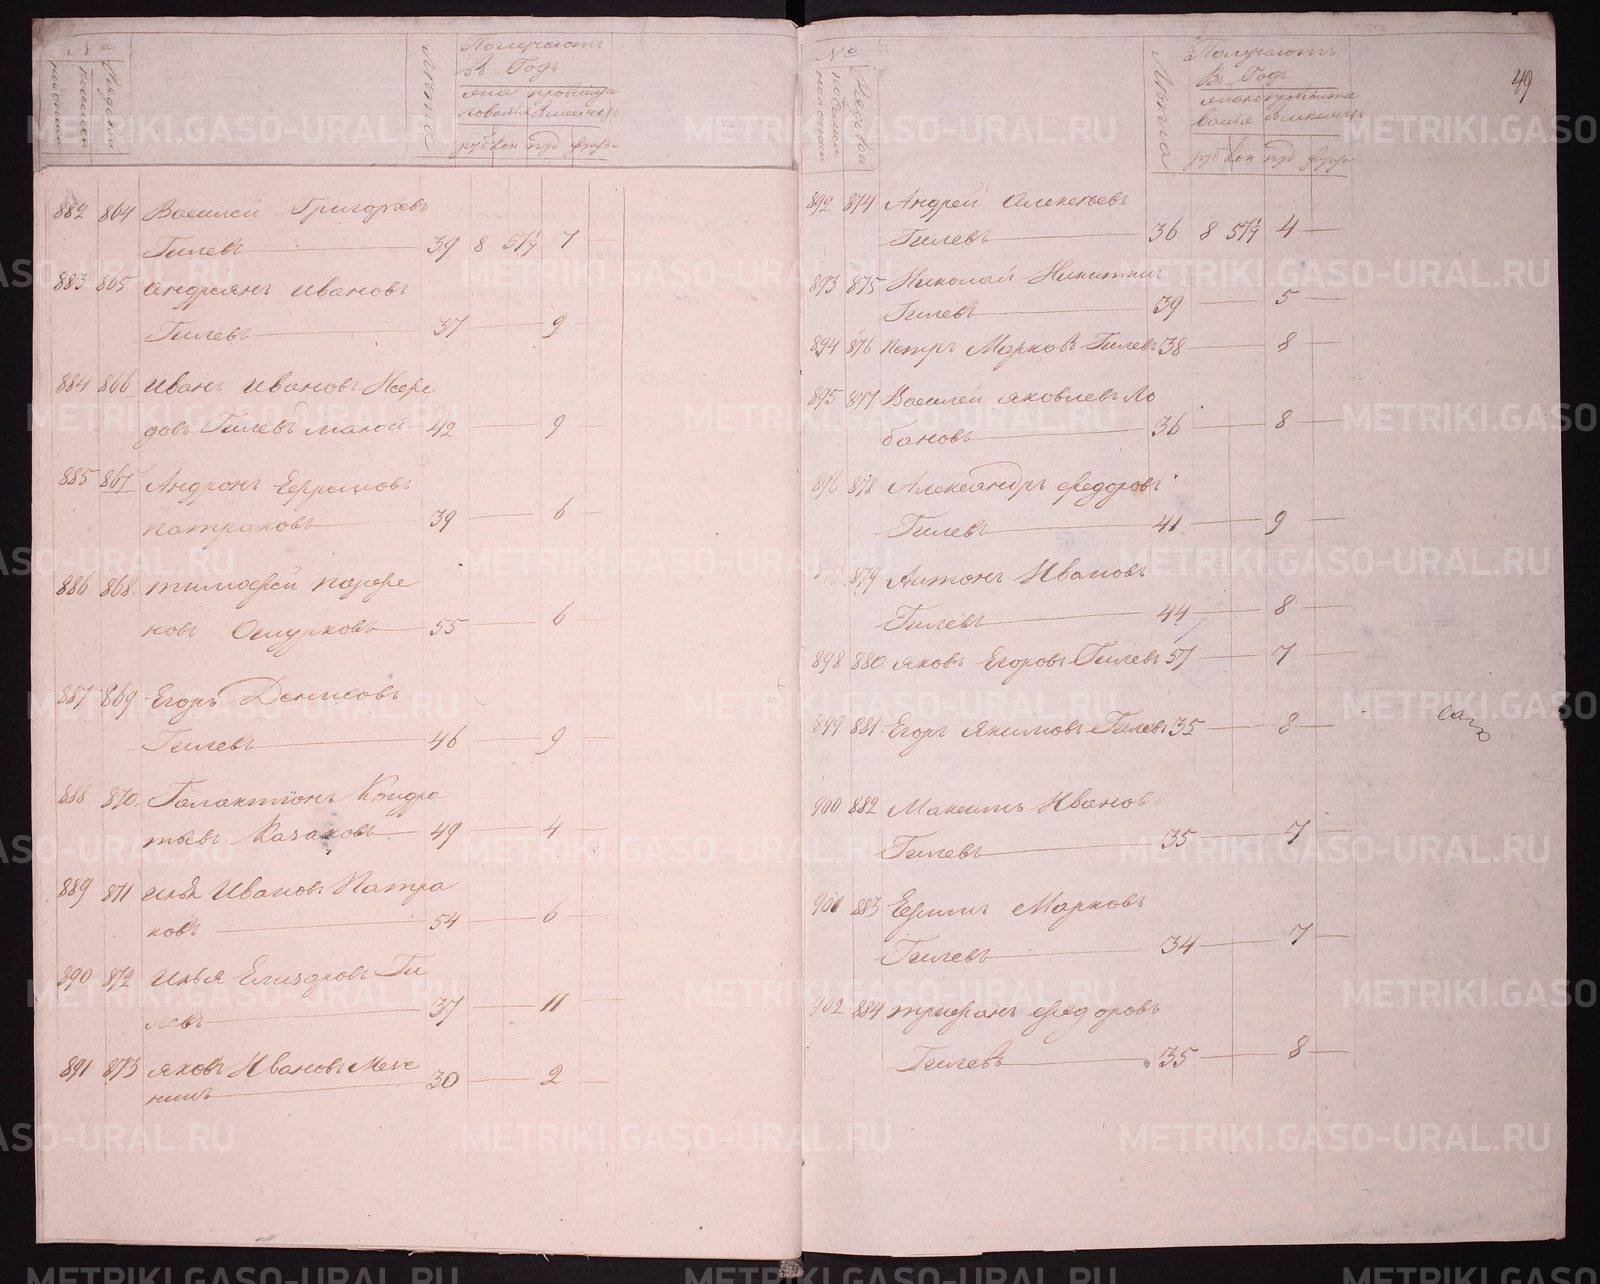 №
Получаютъ
въ Годъ
Лѣта
руб коп пуд фун
882 864 Василей Григорьевъ
Гилевъ 39 8 57 1/7 7
883 865 Андреянъ Ивановъ
Гилевъ 37 9
884 866 Иванъ Ивановъ
Гилевъ малой 42 9
885 867 Андронъ Ефремовъ
Патраковъ 39 6
886 868 Тимофей Парфе
новъ Ошурковъ 55 6
887 869 Егоръ Денисовъ
Гилевъ 46 9
888 870 Галактіонъ Кондра
тьевъ Казаковъ 49 4
889 871 Илья Ивановъ Патра
ковъ 54 6
890 872 Илья Елизаровъ Ги
левъ 37 11
891 873 Яковъ Ивановъ
30 2
49
№
Получаютъ
Въ Годъ
Лѣта
руб коп пуд фун
892 874 Андрей Алексѣевъ
Гилевъ 36 8 57 1/7 4
893 875 Николай Никитинъ
Гилевъ 39 5
894 876 Петръ Марковъ Гилевъ 38 8
895 877 Василей Яковлевъ Ло
бановъ 36 8
896 878 Александръ Федоровъ
Гилевъ 41 9
879 Антонъ Ивановъ
Гилевъ 44 8
898 880 Яковъ Егоровъ Гилевъ 57 7
899 881 Егоръ Якимовъ Гилевъ 35 8
900 882 Максимъ Ивановъ
Гилевъ 35 7
901 883 Ефимъ Марковъ
Гилевъ 34 7
902 884 Трифанъ Федоровъ
Гилевъ 35 8
METRIKI.GASO-URAL.RU